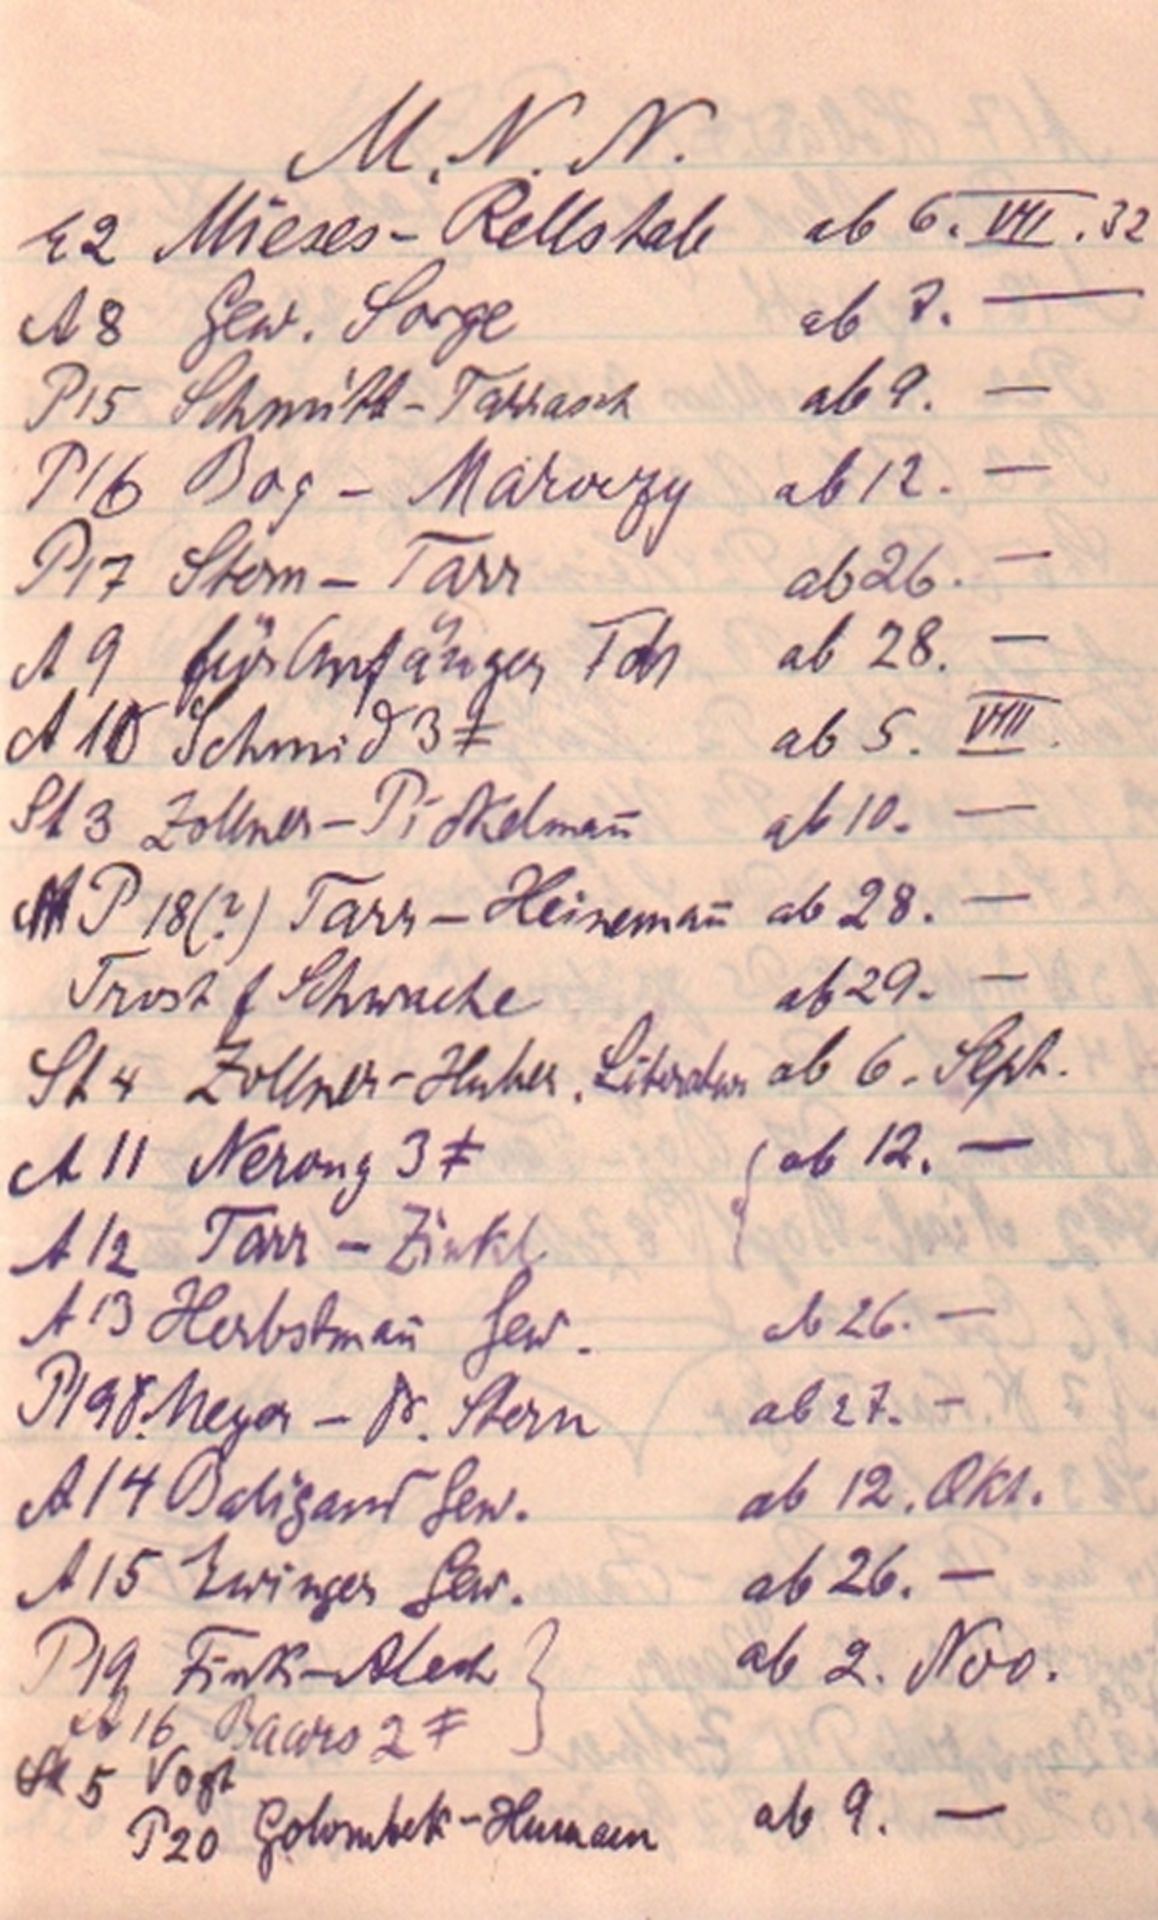 M. N. N.
E2 Mieses - Rellstab ab 6. VII. 32
A 8 Gew. Sorge ab 7. —
P15 - Tarrasch ab 9. —
P16 Bog - Maroczy ab 12. —
P17 Stern - Tarr ab 26. —
A 9 für Anfänger ab 28. —
A 10 Schmid 3 ‡ ab 5. VIII.
St 3 Zollner - Pickelmañ ab 10. —
P 18(?) Tarr - Heinemañ ab 28. —
Trost f Schwache ab 29. —
St 4 Zollner - Huber. Literatur ab 6. Sept.
A 11 Nerong 3 ‡ ab 12. —
A 12 Tarr - Zinkl
A 13 Herbstmañ Gew. ab 26. —
Meyer - Dr. Stern ab 27. —
A 14 Baligand Gew. ab 12. Okt.
A 15 Gew. ab 26. —
P19 Fink - Alech ab 2. Nov.
A 16 Baars 2 ‡
St 5 Vogt
P20 Golombek - ab 9. —